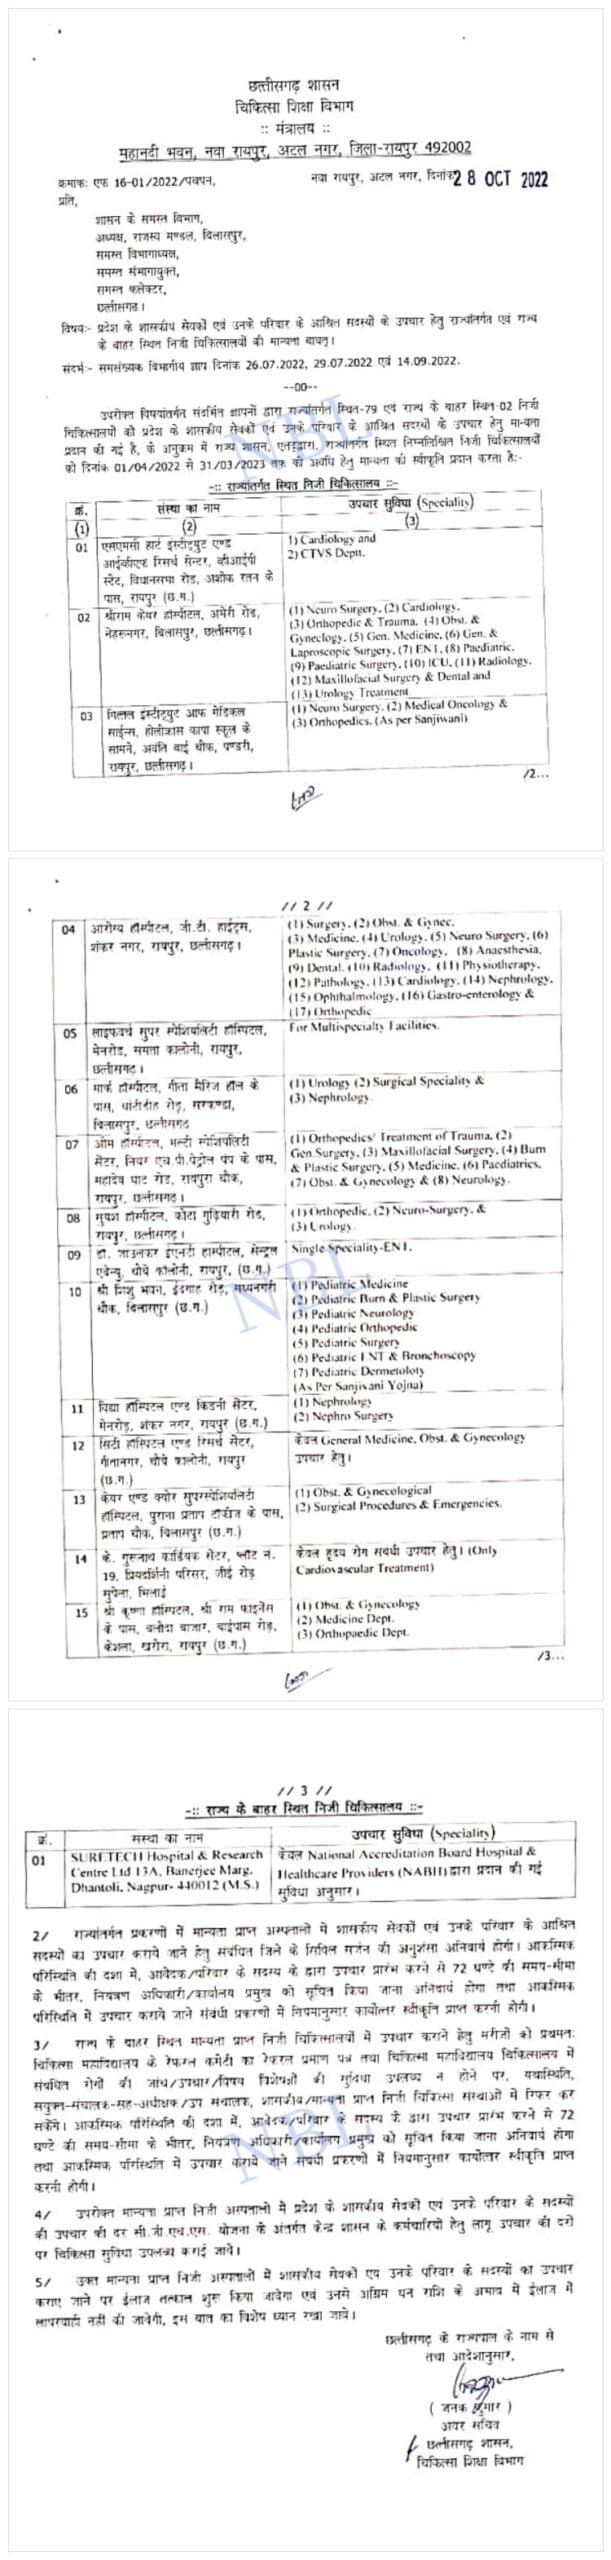 छत्तीसगढ़ शासन
चिकित्सा शिक्षा विभाग
:: मंत्रालय ::
महानदी भवन, नवा रायपुर, अटल नगर, जिला-रायपुर 492002
क्रमांक: एफ 16-01/2022/पचपन, नवा रायपुर, अटल नगर, दिनांक 28 OCT 2022
प्रति,
शासन के समस्त विभाग,
अध्यक्ष, राजस्व मण्डल, बिलासपुर,
समस्त विभागाध्यक्ष,
समस्त संभागायुक्त,
समस्त कलेक्टर,
छत्तीसगढ़।
विषय:- प्रदेश के शासकीय सेवकों एवं उनके परिवार के आश्रित सदस्यों के उपचार हेतु राज्यांतर्गत एवं राज्य
के बाहर स्थित निजी चिकित्सालयों की मान्यता बाबत्।
संदर्भ:- समसंख्यक विभागीय ज्ञाप दिनांक 26.07.2022, 29.07.2022 एवं 14.09.2022.
--00--
उपरोक्त विषयांतर्गत संदर्भित ज्ञापनों द्वारा राज्यांतर्गत स्थित-79 एवं राज्य के बाहर स्थित-02 निजी
चिकित्सालयों को प्रदेश के शासकीय सेवकों एवं उनके परिवार के आश्रित सदस्यों के उपचार हेतु मान्यता
प्रदान की गई है, के अनुक्रम में राज्य शासन, एतद्द्वारा, राज्यांतर्गत स्थित निम्नलिखित निजी चिकित्सालयों
को दिनांक 01/04/2022 से 31/03/2023 तक की अवधि हेतु मान्यता की स्वीकृति प्रदान करता है:-
-:: राज्यांतर्गत स्थित निजी चिकित्सालय ::-
क्रं. संस्था का नाम उपचार सुविधा (Speciality)
(1) (2) (3)
01 एसएमसी हार्ट इंस्टीट्युट एण्ड 1) Cardiology and
आईव्हीएफ रिसर्च सेन्टर, व्हीआईपी 2) CTVS Deptt.
स्टेट, विधानसभा रोड, अशोक रतन के
पास, रायपुर (छ.ग.)
02 श्रीराम केयर हॉस्पीटल, अमेरी रोड, (1) Neuro Surgery, (2) Cardiology,
नेहरूनगर, बिलासपुर, छत्तीसगढ़। (3) Orthopedic & Trauma, (4) Obst. &
Gyneclogy, (5) Gen. Medicine, (6) Gen. &
Laproscopic Surgery, (7) ENT, (8) Paediatric,
(9) Paediatric Surgery, (10) ICU, (11) Radiology,
(12) Maxillofacial Surgery & Dental and
(13) Urology Treatment.
03 मित्तल इंस्टीट्युट आफ मेडिकल (1) Neuro Surgery, (2) Medical Oncology &
साईन्स, होलीक्रास कापा स्कूल के (3) Orthopedics, (As per Sanjiwani)
सामने, अवंति बाई चौक, पण्डरी,
रायपुर, छत्तीसगढ़।
/2...
// 2 //
04 आरोग्य हॉस्पीटल, जी.टी. हाईट्स, (1) Surgery, (2) Obst. & Gynec.
शंकर नगर, रायपुर, छत्तीसगढ़। (3) Medicine, (4) Urology, (5) Neuro Surgery, (6)
Plastic Surgery, (7) Oncology, (8) Anaesthesia,
(9) Dental, (10) Radiology, (11) Physiotherapy,
(12) Pathology, (13) Cardiology, (14) Nephrology,
(15) Ophthalmology, (16) Gastro-enterology &
(17) Orthopedic
05 लाइफवर्थ सुपर स्पेशियलिटी हॉस्पिटल, For Multispecialty Facilities.
मेनरोड, समता कालोनी, रायपुर,
छत्तीसगढ़।
06 मार्क हॉस्पीटल, गीता मैरिज हॉल के (1) Urology (2) Surgical Speciality &
पास, चांटीडीह रोड़, सरकण्डा, (3) Nephrology.
बिलासपुर, छत्तीसगढ़
07 ओम हॉस्पीटल, मल्टी स्पेशियलिटी (1) Orthopedics/ Treatment of Trauma, (2)
सेंटर, नियर एच.पी.पेट्रोल पंप के पास, Gen.Surgery, (3) Maxillofacial Surgery, (4) Burn
महादेव घाट रोड, रायपुरा चौक, & Plastic Surgery, (5) Medicine, (6) Paediatrics,
रायपुर, छत्तीसगढ़। (7) Obst. & Gynecology & (8) Neurology.
08 सुयश हॉस्पीटल, कोटा गुढ़ियारी रोड़, (1) Orthopedic, (2) Neuro-Surgery, &
रायपुर, छत्तीसगढ़। (3) Urology.
09 डॉ. जाउलकर ईएनटी हास्पीटल, सेन्ट्रल Single Speciality-ENT.
एवेन्यु, चौबे कॉलोनी, रायपुर, (छ.ग.)
10 श्री शिशु भवन, ईदगाह रोड़, मध्यनगरी (1) Pediatric Medicine
चौक, बिलासपुर (छ.ग.) (2) Pediatric Burn & Plastic Surgery
(3) Pediatric Neurology
(4) Pediatric Orthopedic
(5) Pediatric Surgery
(6) Pediatric ENT & Bronchoscopy
(7) Pediatric Dermetoloty
(As Per Sanjivani Yojna)
11 विद्या हॉस्पिटल एण्ड किडनी सेंटर, (1) Nephrology
मेनरोड़, शंकर नगर, रायपुर (छ.ग.) (2) Nephro Surgery
12 सिटी हॉस्पिटल एण्ड रिसर्च सेंटर, केवल General Medicine, Obst. & Gynecology
गीतानगर, चौबे कालोनी, रायपुर उपचार हेतु।
(छ.ग.)
13 केयर एण्ड क्योर सुपरस्पेशियलिटी (1) Obst. & Gynecological
हॉस्पिटल, पुराना प्रताप टॉकीज के पास, (2) Surgical Procedures & Emergencies.
प्रताप चौक, बिलासपुर (छ.ग.)
14 के. गुरूनाथ कार्डियक सेंटर, प्लॉट नं. केवल हृदय रोग संबंधी उपचार हेतु। (Only
19, प्रियदर्शिनी परिसर, जीई रोड़ Cardiovascular Treatment)
सुपेला, भिलाई
15 श्री कृष्णा हॉस्पिटल, श्री राम फाइनेंस (1) Obst. & Gynecology
के पास, बलौदा बाजार, बाईपास रोड़, (2) Medicine Dept.
केशला, खरोरा, रायपुर (छ.ग.) (3) Orthopaedic Dept.
/3...
// 3 //
-:: राज्य के बाहर स्थित निजी चिकित्सालय ::-
क्रं. संस्था का नाम उपचार सुविधा (Speciality)
01 SURETECH Hospital & Research केवल National Accreditation Board Hospital &
Centre Ltd 13A, Banerjee Marg, Healthcare Providers (NABH) द्वारा प्रदान की गई
Dhantoli, Nagpur- 440012 (M.S.) सुविधा अनुसार।
2/ राज्यांतर्गत प्रकरणों में मान्यता प्राप्त अस्पतालों में शासकीय सेवकों एवं उनके परिवार के आश्रित
सदस्यों का उपचार कराये जाने हेतु संबंधित जिले के सिविल सर्जन की अनुशंसा अनिवार्य होगी। आकस्मिक
परिस्थिति की दशा में, आवेदक/परिवार के सदस्य के द्वारा उपचार प्रारंभ करने से 72 घण्टे की समय-सीमा
के भीतर, नियंत्रण अधिकारी/कार्यालय प्रमुख को सूचित किया जाना अनिवार्य होगा तथा आकस्मिक
परिस्थिति में उपचार कराये जाने संबंधी प्रकरणों में नियमानुसार कार्योत्तर स्वीकृति प्राप्त करनी होगी।
3/ राज्य के बाहर स्थित मान्यता प्राप्त निजी चिकित्सालयों में उपचार कराने हेतु मरीजों को प्रथमतः
चिकित्सा महाविद्यालय के रेफरल कमेटी का रेफरल प्रमाण पत्र तथा चिकित्सा महाविद्यालय चिकित्सालय में
संबंधित रोगों की जांच/उपचार/विषय विशेषज्ञों की सुविधा उपलब्ध न होने पर, यथास्थिति,
संयुक्त-संचालक-सह-अधीक्षक/उप संचालक, शासकीय/मान्यता प्राप्त निजी चिकित्सा संस्थाओं में रिफर कर
सकेंगे। आकस्मिक परिस्थिति की दशा में, आवेदक/परिवार के सदस्य के द्वारा उपचार प्रारंभ करने से 72
घण्टे की समय-सीमा के भीतर, नियंत्रण अधिकारी/कार्यालय प्रमुख को सूचित किया जाना अनिवार्य होगा
तथा आकस्मिक परिस्थिति में उपचार कराये जाने संबंधी प्रकरणों में नियमानुसार कार्योत्तर स्वीकृति प्राप्त
करनी होगी।
4/ उपरोक्त मान्यता प्राप्त निजी अस्पतालों में प्रदेश के शासकीय सेवकों एवं उनके परिवार के सदस्यों
की उपचार की दर सी.जी.एच.एस. योजना के अंतर्गत केन्द्र शासन के कर्मचारियों हेतु लागू उपचार की दरों
पर चिकित्सा सुविधा उपलब्ध कराई जावे।
5/ उक्त मान्यता प्राप्त निजी अस्पतालों में शासकीय सेवकों एवं उनके परिवार के सदस्यों का उपचार
कराए जाने पर ईलाज तत्काल शुरू किया जावेगा एवं उनसे अग्रिम धन राशि के अभाव में ईलाज में
लापरवाही नहीं की जावेगी, इस बात का विशेष ध्यान रखा जावे।
छत्तीसगढ़ के राज्यपाल के नाम से
तथा आदेशानुसार,
( जनक कुमार )
अवर सचिव
छत्तीसगढ़ शासन,
चिकित्सा शिक्षा विभाग
NBL
NBL
NBL